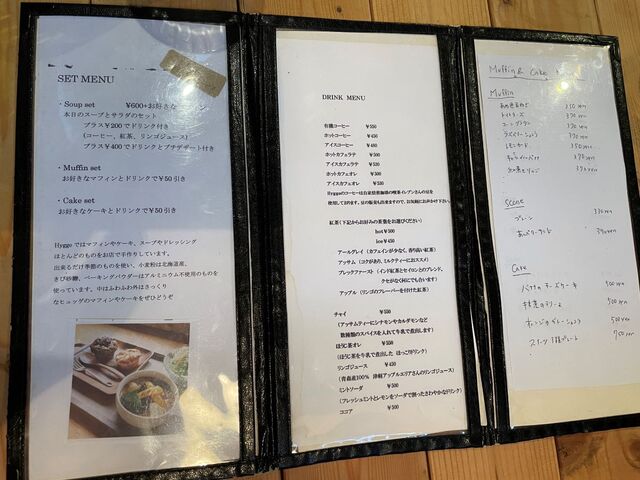 SET MENU
・Soup set ¥600+お好きな
本日のスープとサラダのセット
プラス¥200でドリンク付き
(コーヒー、紅茶、リンゴジュース)
プラス¥400でドリンクとプチデザート付き
・Muffin set
お好きなマフィンとドリンクで¥50引き
・Cake set
お好きなケーキとドリンクで¥50引き
Hyggeではマフィンやケーキ、スープやドレッシング
ほとんどのものをお店で手作りしています。
出来るだけ季節のものを使い、小麦粉は北海道産、
きび砂糖、ベーキングパウダーはアルミニウム不使用のもの
を使っています。中はふわふわ外はさっくり
なヒュッゲのマフィンやケーキをぜひどうぞ
DRINK MENU
有機コーヒー ¥550
ホットコーヒー ¥450
アイスコーヒー ¥480
ホットカフェラテ ¥500
アイスカフェラテ ¥520
ホットカフェオレ ¥500
アイスカフェオレ ¥520
Hyggeのコーヒーは自家焙煎珈琲の喫茶イレブンさんの豆を
使用しております。豆の販売も出来ますので、お気軽にお声かけ下さい。
紅茶(下記からお好みの茶葉をお選びください)
hot¥500
ice¥450
アールグレイ (カフェインが少なく、香り高い紅茶)
アッサム (コクがあり、ミルクティーにおススメ)
ブレックファースト (インド紅茶とセイロンとのブレンド、
クセがなく何にでも合います)
アップル (リンゴのフレーバーを付けた紅茶)
チャイ ¥550
(アッサムティーにシナモンやカルダモンなど
数種類のスパイスを入れて牛乳で煮出します)
ほうじ茶オレ ¥550
(ほうじ茶を牛乳で煮出した ほっこりドリンク)
リンゴジュース ¥450
(青森産100% 津軽アップルエリアさんのリンゴジュース)
ミントソーダ ¥500
(フレッシュミントとレモンをソーダで割ったさわやかなドリンク)
ココア ¥500
Muffin & Cake
Muffin
350 yen
トマトチーズ 350 yen
370 yen
370 yen
350 yen
390 yen
Scone
プレーン 330 yen
Cake
バナナのチーズケーキ 500 yen
500 yen
500 yen
750 yen